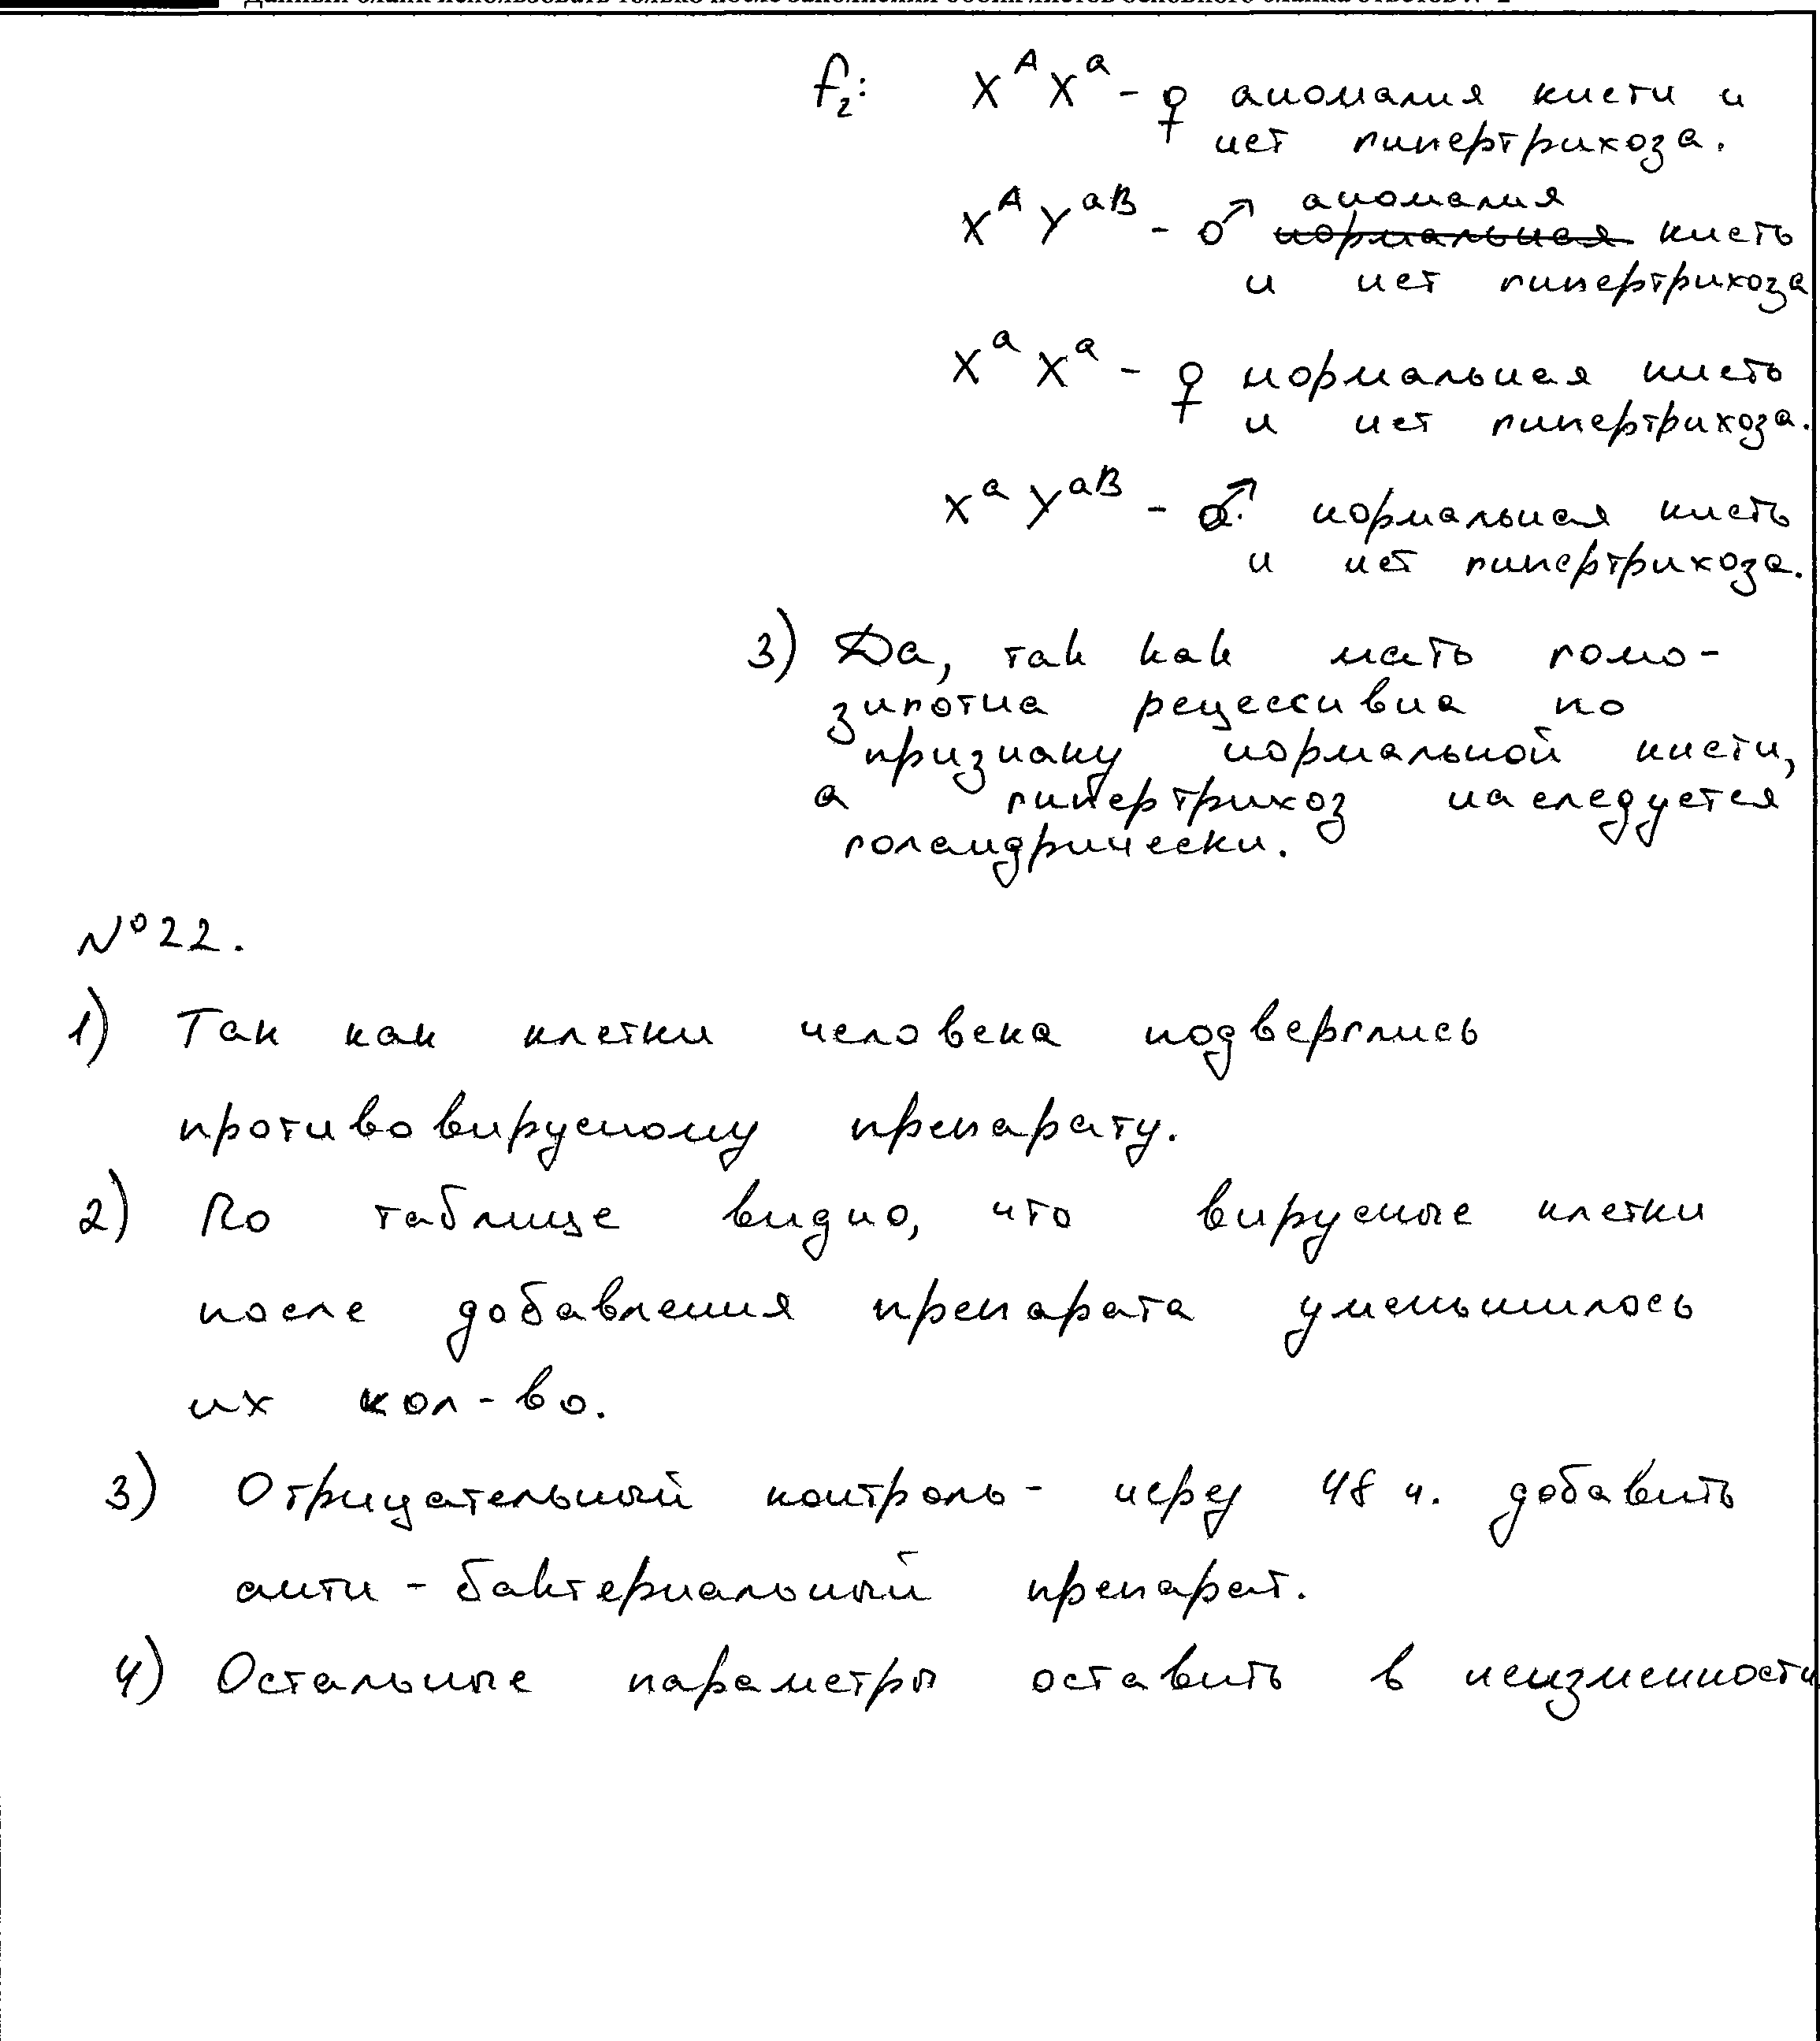 Данный бланк использовать только после заполнения обеих листов основного бланка ответов № 2
F₂: X^A X^a - ♀ аномалия кисти и
нет гипертрихоза.
аномалия
X^A Y^aB - ♂ нормальная кисть
и нет гипертрихоза
X^a X^a - ♀ нормальная кисть
и нет гипертрихоза.
X^a Y^aB - ♂ нормальная кисть
и нет гипертрихоза.
3) Да, так как мать гомо-
зиготна рецессивна по
признаку нормальной кисти,
а гипертрихоз наследуется
голандрически.
№22.
1) Так как клетки человека подверглись
противовирусному препарату.
2) По таблице видно, что вирусные клетки
после добавления препарата уменьшилось
их кол-во.
3) Отрицательный контроль - чере 48 ч. добавить
анти-бактериальный препарат.
4) Остальные параметры оставить в неизменности